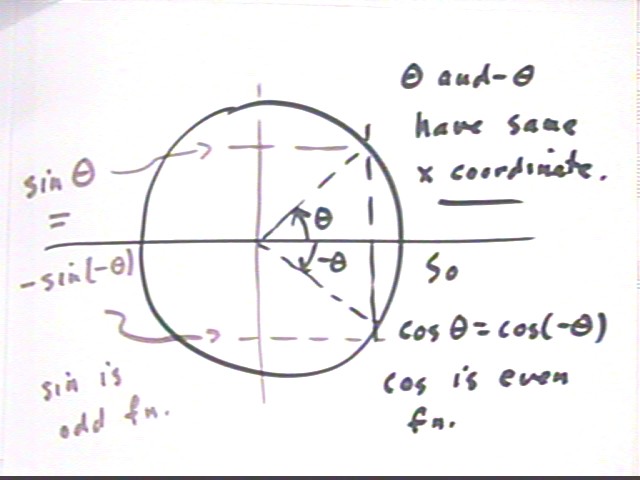 θ and -θ
have same
x coordinate.
sin θ
=
-sin(-θ)
θ
-θ
So
cos θ = cos(-θ)
cos is even
fn.
sin is
odd fn.